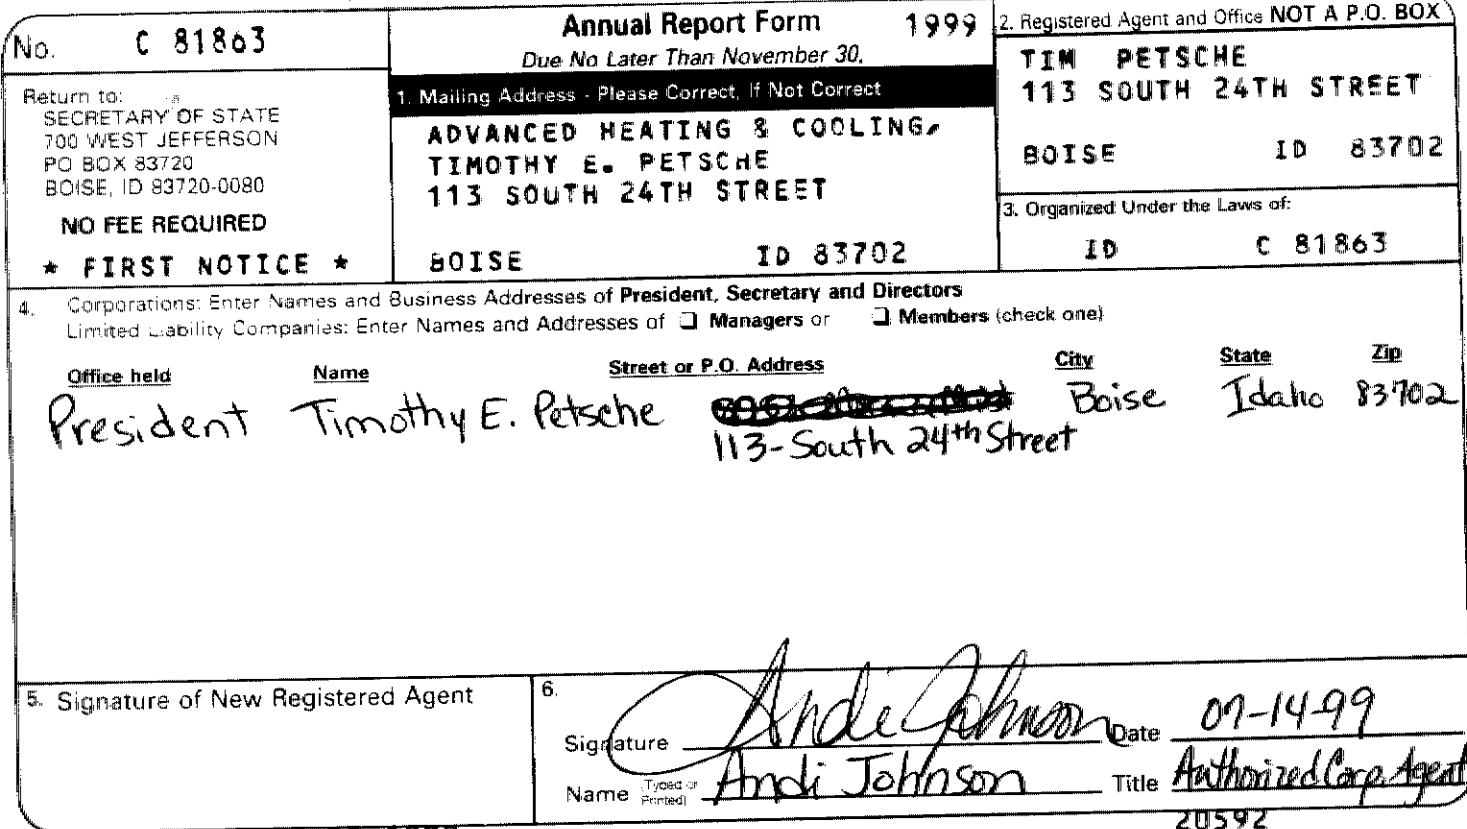 No. C 81863
Annual Report Form 1999
Due No Later Than November 30,
Return to:
SECRETARY OF STATE
700 WEST JEFFERSON
PO BOX 83720
BOISE, ID 83720-0080
NO FEE REQUIRED
* FIRST NOTICE *
1. Mailing Address - Please Correct, If Not Correct
ADVANCED HEATING & COOLING,
TIMOTHY E. PETSCHE
113 SOUTH 24TH STREET
BOISE ID 83702
2. Registered Agent and Office NOT A P.O. BOX
TIM PETSCHE
113 SOUTH 24TH STREET
BOISE ID 83702
3. Organized Under the Laws of:
ID C 81863
4. Corporations: Enter Names and Business Addresses of President, Secretary and Directors
Limited Liability Companies: Enter Names and Addresses of ❑ Managers or ❑ Members (check one)
Office held Name Street or P.O. Address City State Zip
President Timothy E. Petsche Boise Idaho 83702
113-South 24th Street
5. Signature of New Registered Agent
6.
Signature Andi Johnson Date 07-14-99
Name (Typed or Printed) Andi Johnson Title Authorized Corp. Agent
20592